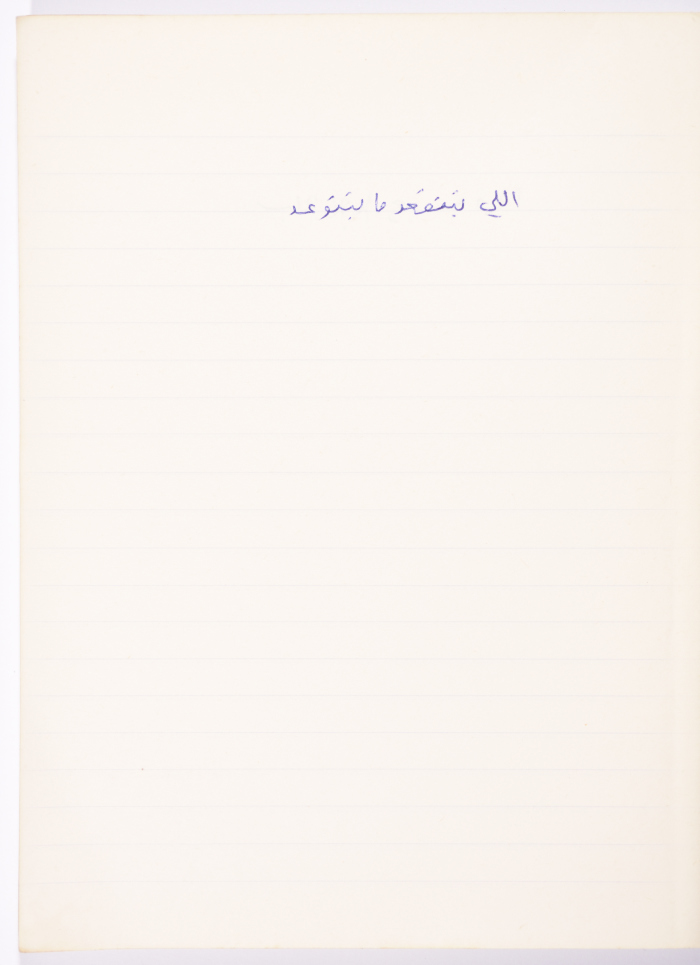 اللي بتتقعد ما بتتوعد